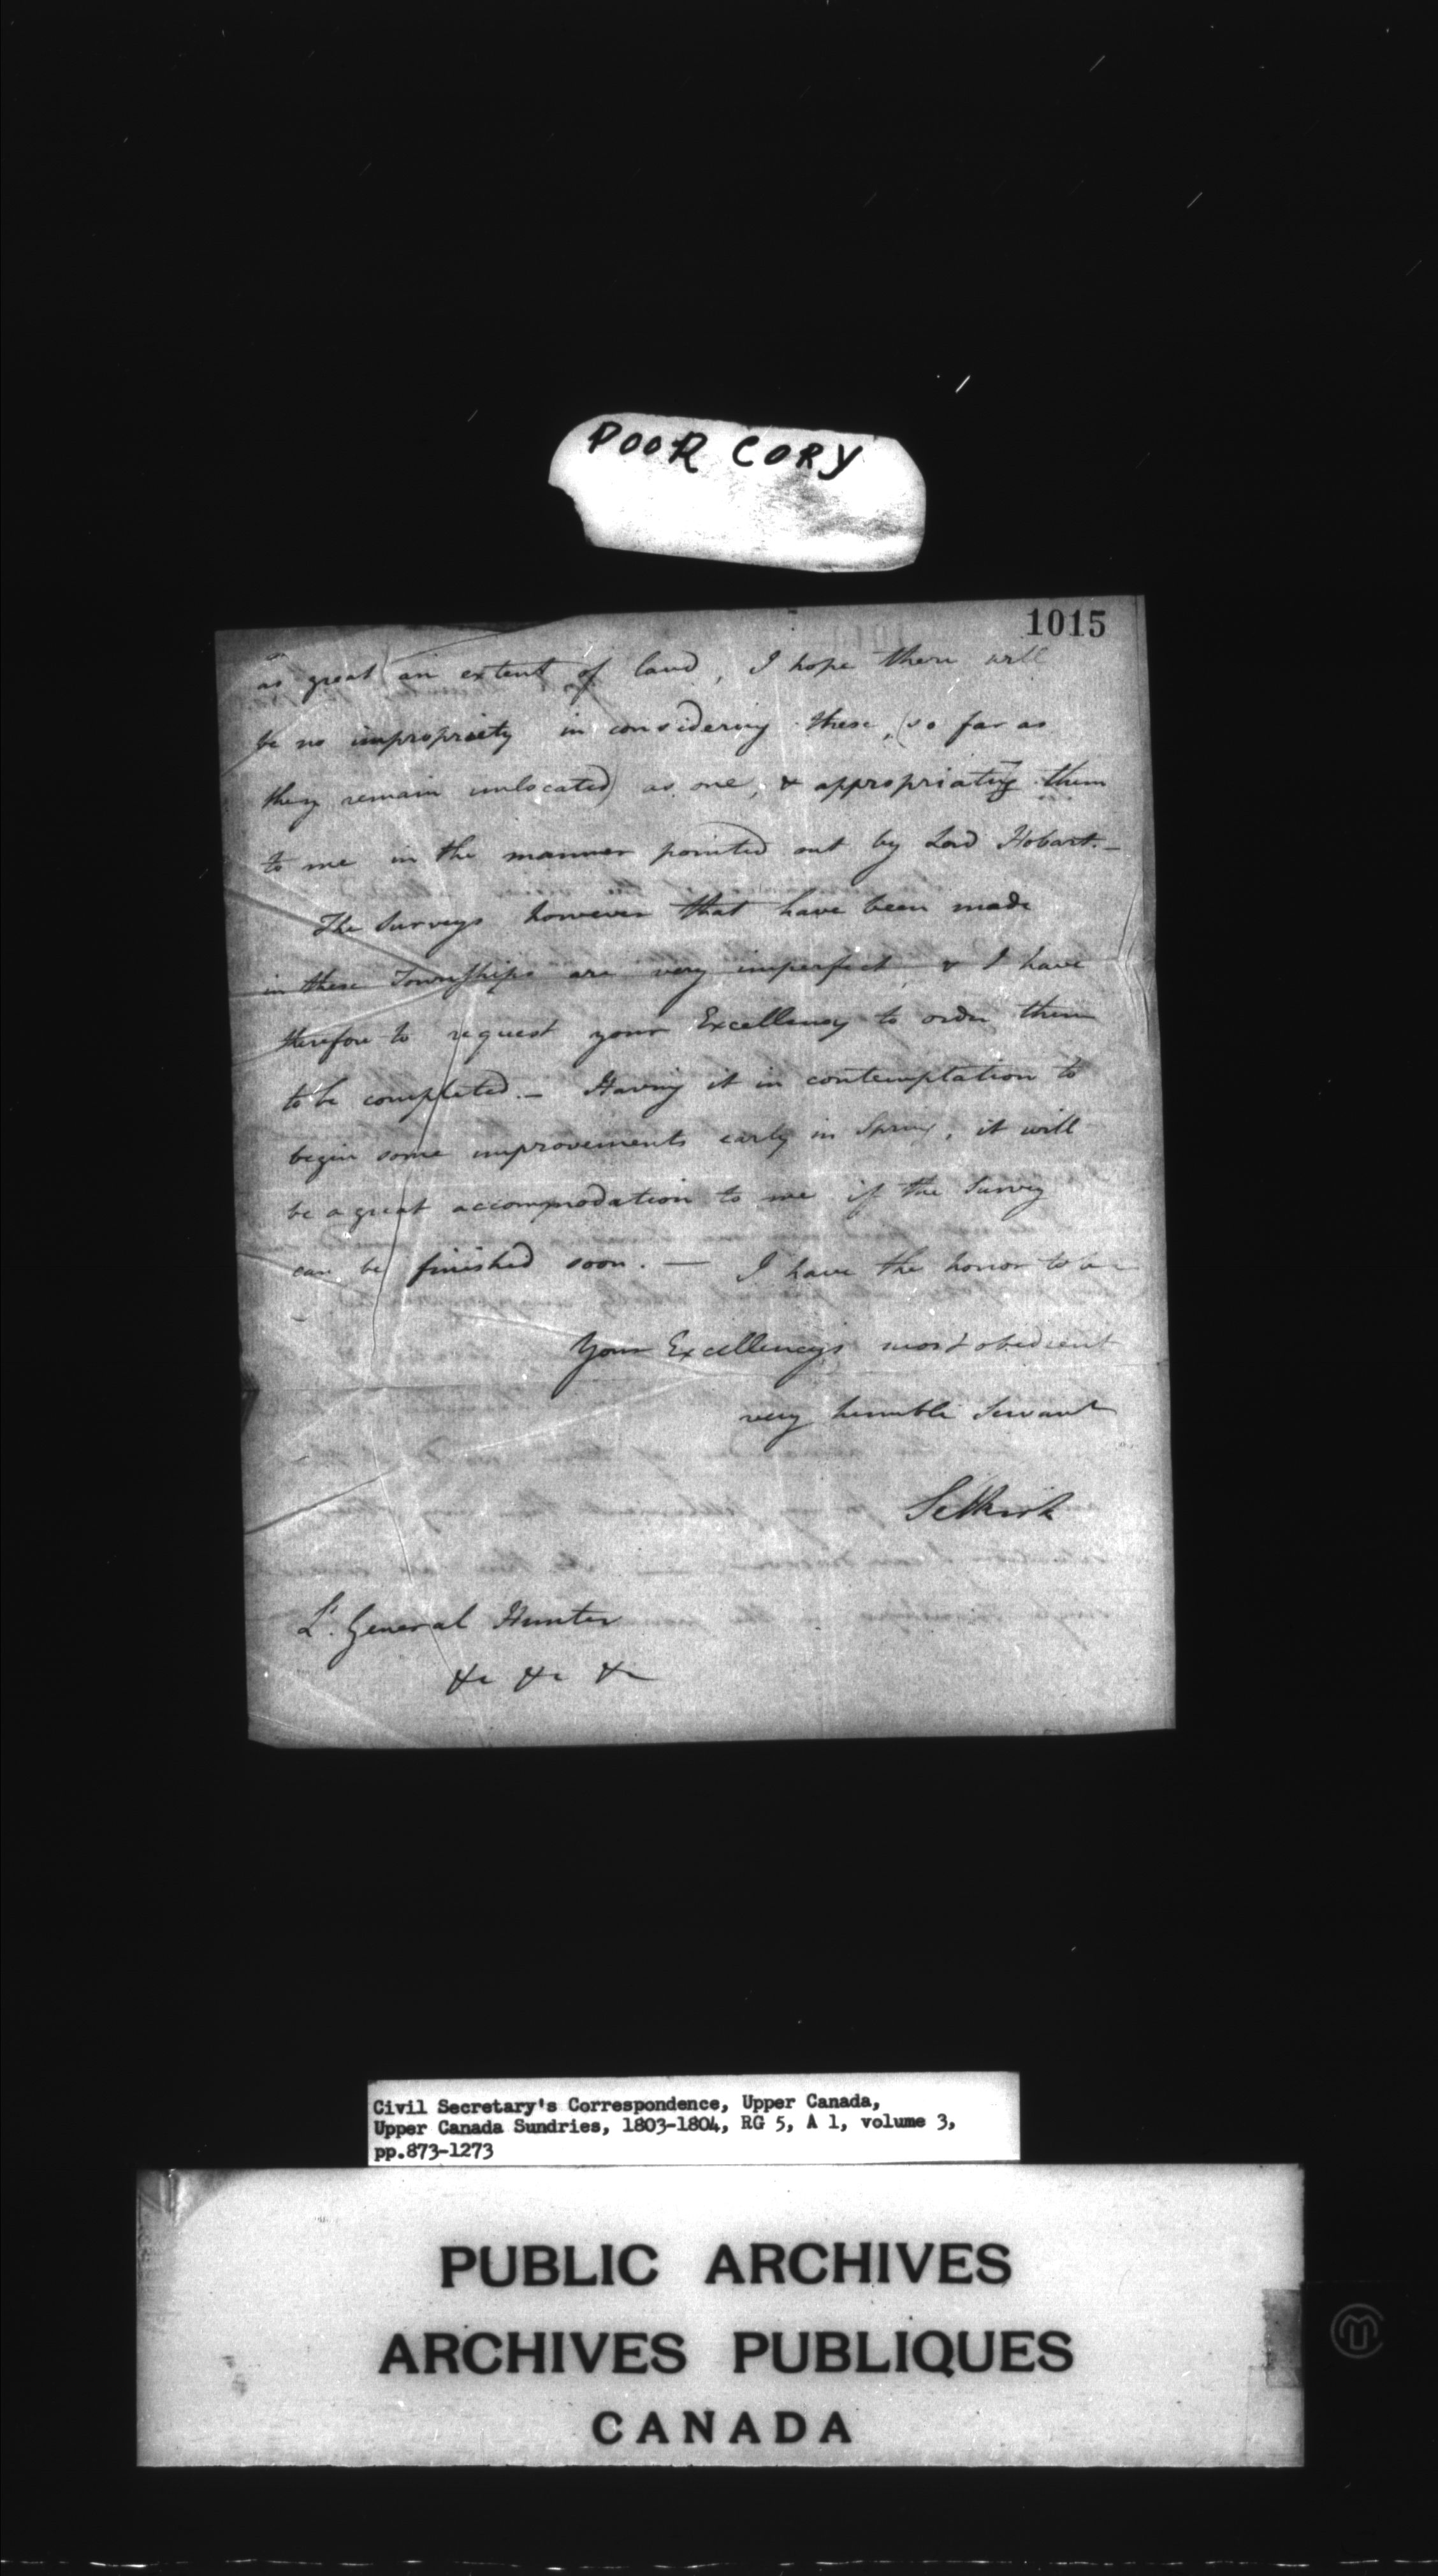 POOR COPY
1015
as great an extent of land, I hope there will
be no impropriety in considering these, (so far as
they remain unlocated) as one, & appropriating them
to me in the manner pointed out by Lord Hobart. —
The Surveys however that have been made
in these Townships are very imperfect & I have
therefore to request your Excellency to order them
to be completed. — Having it in contemptation to
begin some improvements early in Spring, it will
be a great accommodation to me if the Survey
can be finished soon. — I have the honor to be
Your Excellency's most obedient
very humble Servant
Selkirk
Lt. General Hunter
&c &c &c
Civil Secretary's Correspondence, Upper Canada,
Upper Canada Sundries, 1803-1804, RG 5, A 1, volume 3,
pp.873-1273
PUBLIC ARCHIVES
ARCHIVES PUBLIQUES
CANADA